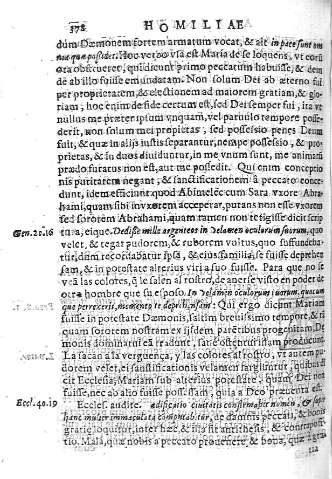 378 HOMILIAE
dum Dæmonem fortem armatum vocat, & ait in pace sunt om
nia quæ possidet. Hoc verbo vsa est Maria de se loquens, vt cõru
ora obstrueret, qui dicunt primo peccatum habuisse, & dein
de ab illo fuisse emundatam. Non solum Dei ab æterno fui
per proprietatem, & electionem ad maiorem gratiam, & glo
riam, hoc enim de fide certum est, sed Dei semper fui, ita vt
nullus me præter ipsum vnquam, vel parvulo tempore posse-
derit, non solum mei propietas, sed possessio penes Deum
fuit, & quæ in alijs istis separantur, nempe possessio, & pro-
prietas, & in duos dividuntur, in me vnum sunt, me animam
prædo furatus non est, aut me possedit. Qui enim conceptio
nis puritatem negant, & sanctificationem à peccato conce
dunt, idem efficiunt quod Abimelec cum Sara vxore Abra-
hami, quam sibi invt vxorem acceperat, putans non esse vxorem
sed sororem Abrahami, quam tamen non tetigisse dicit scrip
Gen. 20. 16 tura, eique. Dedisse mille argenteos in velamen oculorum suorum, quo
velet, & tegat pudorem, & ruborem voltus, quo suffunde-
tur, dum recordabatur ipsa, & eius familia, se fuisse deprehen
sam, & in potestate alterius viri a suo fuisse. Para que no se
vea las colores, q̃ le salen al rostro, de averse visto en poder de
otro hombre que su esposo. In velamen oculorum tuorum, quocum
que perrexeris, memento te deprehensam: Qui ergo dicunt Mariam
fuisse in potestate Dæmonis, saltim brevissimo tempore, & ta
quam sororem nostram ex ijsdem parẽtibus progenitam, De-
monis dominatui eã tradunt,
La sacan a la verguença, y las colores al rostro, vt autem pu
dorem velet, ei sanctificationis velamen largiuntur, quibus
cit Ecclesia, Mariam sub alterius potestate, quam Dei non
fuisse, nec ab alio fuisse possessam, quia a Deo præcuta est.
Eccl. 40. 19 Eccles. audite. ædificatio civitatis confirmabit nomen, & sup
hanc mulier immaculata computabitur, de damnis peccati, & bonis
gratiæ loquitur, inter hæc & illa sit antithesis, & contrapo
tio. Mala, quæ nobis a peccato provenere & bona, quæ a gra
tia